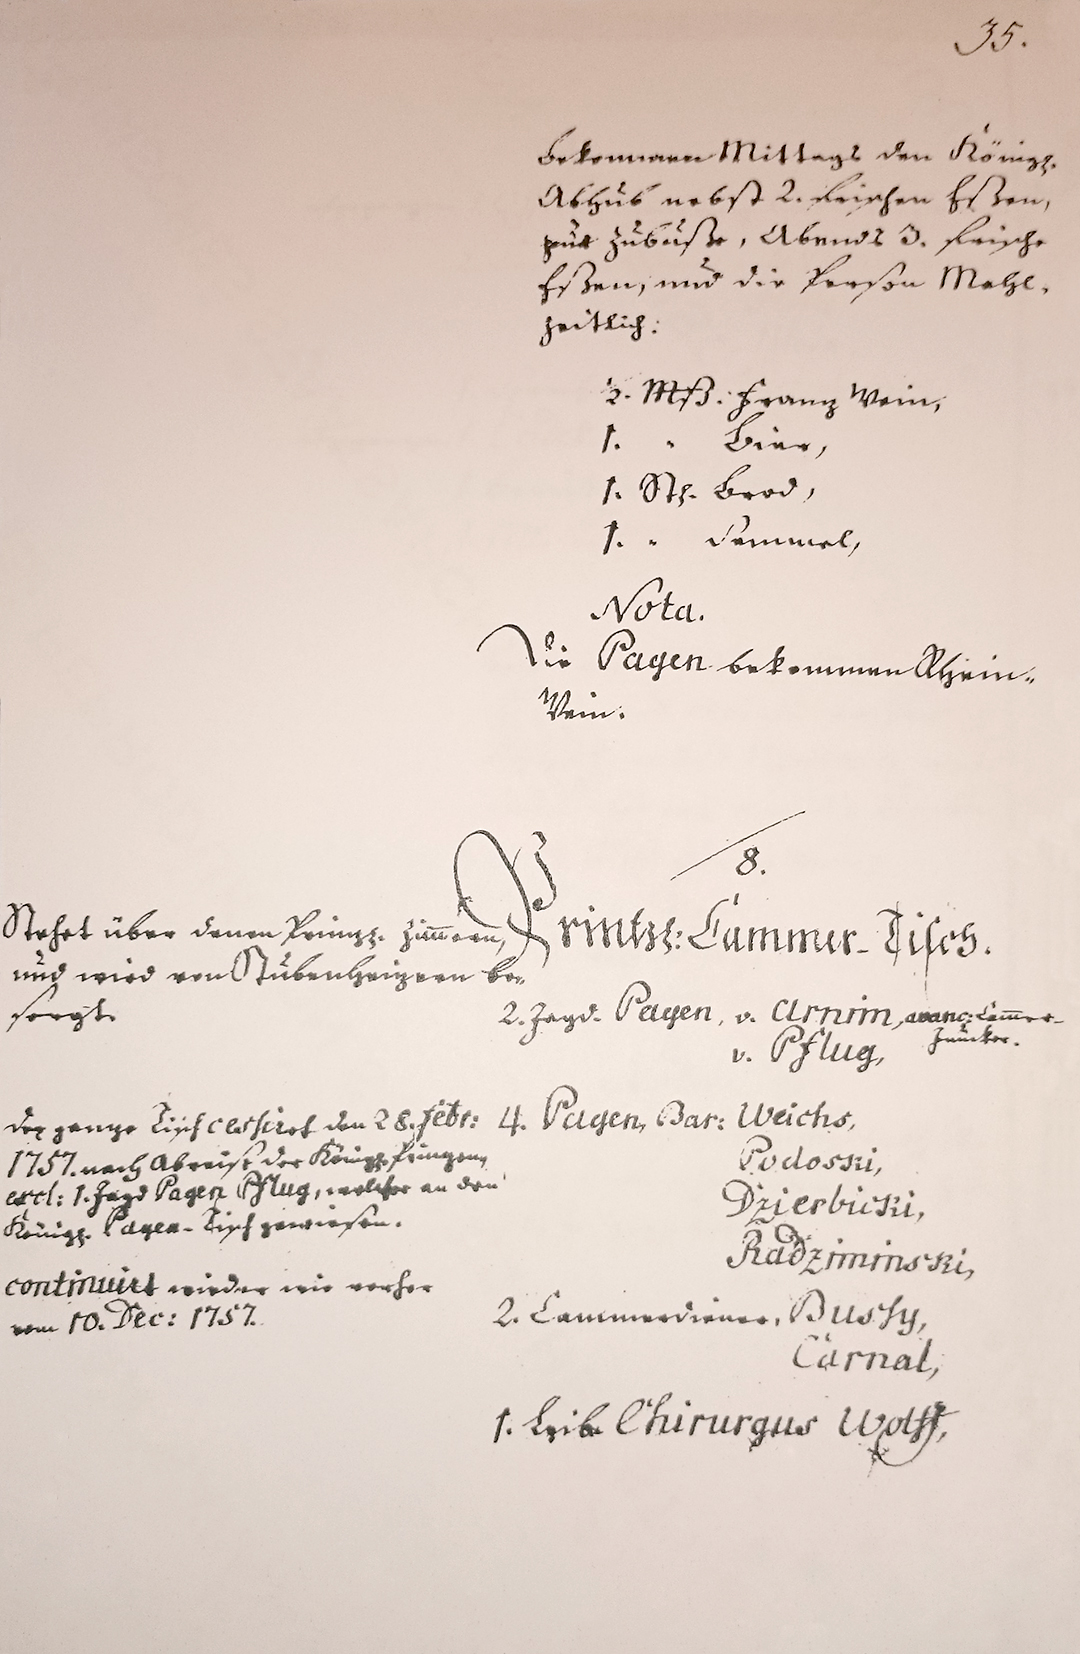 35.
bekommen Mittags den Königl.
Abhub nebst 2. frischen Eßen,
zur Zubuße, Abends 3. frische
Eßen, und die Person Mahl-
zeitlich:
½. Mß. Frantz Wein,
1. " Bier,
1. Stk. Brod,
1. " Semmel,
Nota.
Die Pagen bekommen Rhein-
Wein.
8.
Printzl: Cammer-Tisch.
Stehet über denen Prinzl. Zimmern,
und wird von Stubenheizern be-
sorgt.
2. Jagd-Pagen, v. Arnim, avanc: Cammer-
Juncker.
v. Pflug,
der ganze Tisch cessiret den 28. febr:
1757. nach Abreise der Königl. Prinzen,
excl: 1. Jagd Pagen Pflug, welcher an den
Königl. Pagen-Tisch gewiesen.
continuirt wieder wie vorher
vom 10. Dec: 1757.
4. Pagen, Bar: Weichs,
Podoski,
Dzierbicki,
Radziminski,
2. Cammerdiener, Bussy,
Carnal,
1. Leib Chirurgus Wolff,